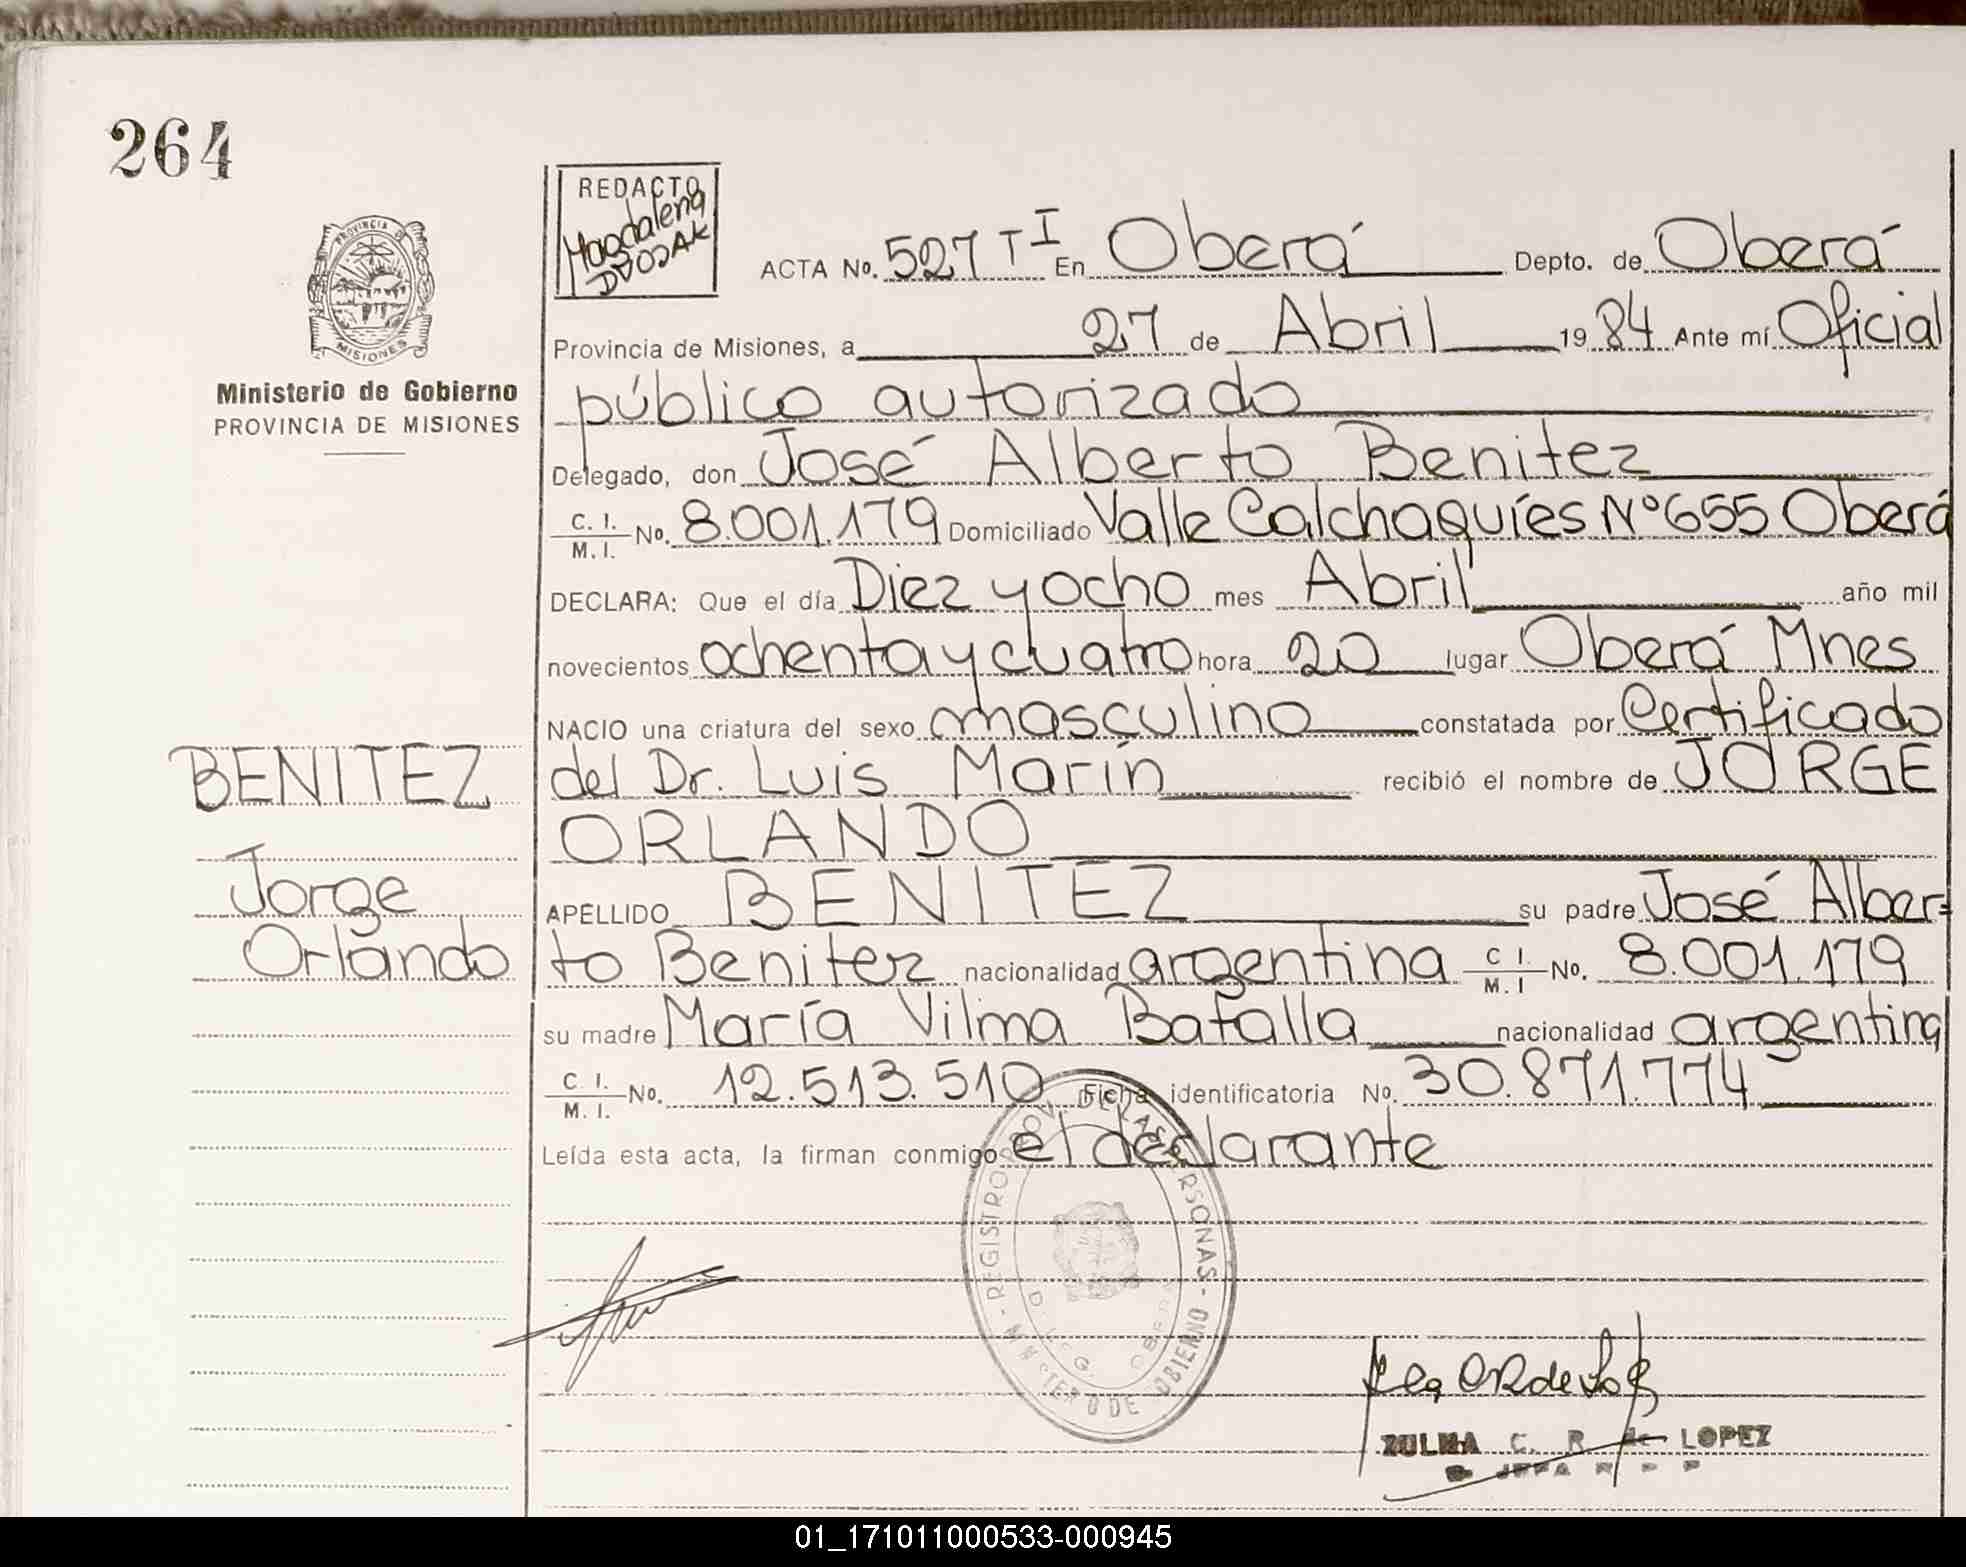 264
REDACTO
Magdalena
ACTA No. 527 T I En Oberá Depto. de Oberá
PROVINCIA DE
MISIONES
Provincia de Misiones, a 27 de Abril 19 84 Ante mí Oficial
Ministerio de Gobierno
PROVINCIA DE MISIONES
público autorizado
Delegado, don José Alberto Benitez
C. I. / M. I. No. 8.001.179 Domiciliado Valle Calchaquíes Nº 655 Oberá
DECLARA: Que el día Diez y ocho mes Abril año mil
novecientos ochenta y cuatro hora 20 lugar Oberá Mnes
NACIO una criatura del sexo masculino constatada por Certificado
BENITEZ
del Dr. Luis Marín recibió el nombre de JORGE
ORLANDO
Jorge
APELLIDO BENITEZ su padre José Alber=
Orlando
to Benitez nacionalidad argentina C I. / M. I No. 8.001.179
su madre María Vilma Batalla nacionalidad argentina
C. I. / M. I. No. 12.513.510 Ficha identificatoria No. 30.871.774
Leída esta acta, la firman conmigo el declarante
REGISTRO PROV. DE LAS PERSONAS
ZULMA C. R. de LOPEZ
01_171011000533-000945